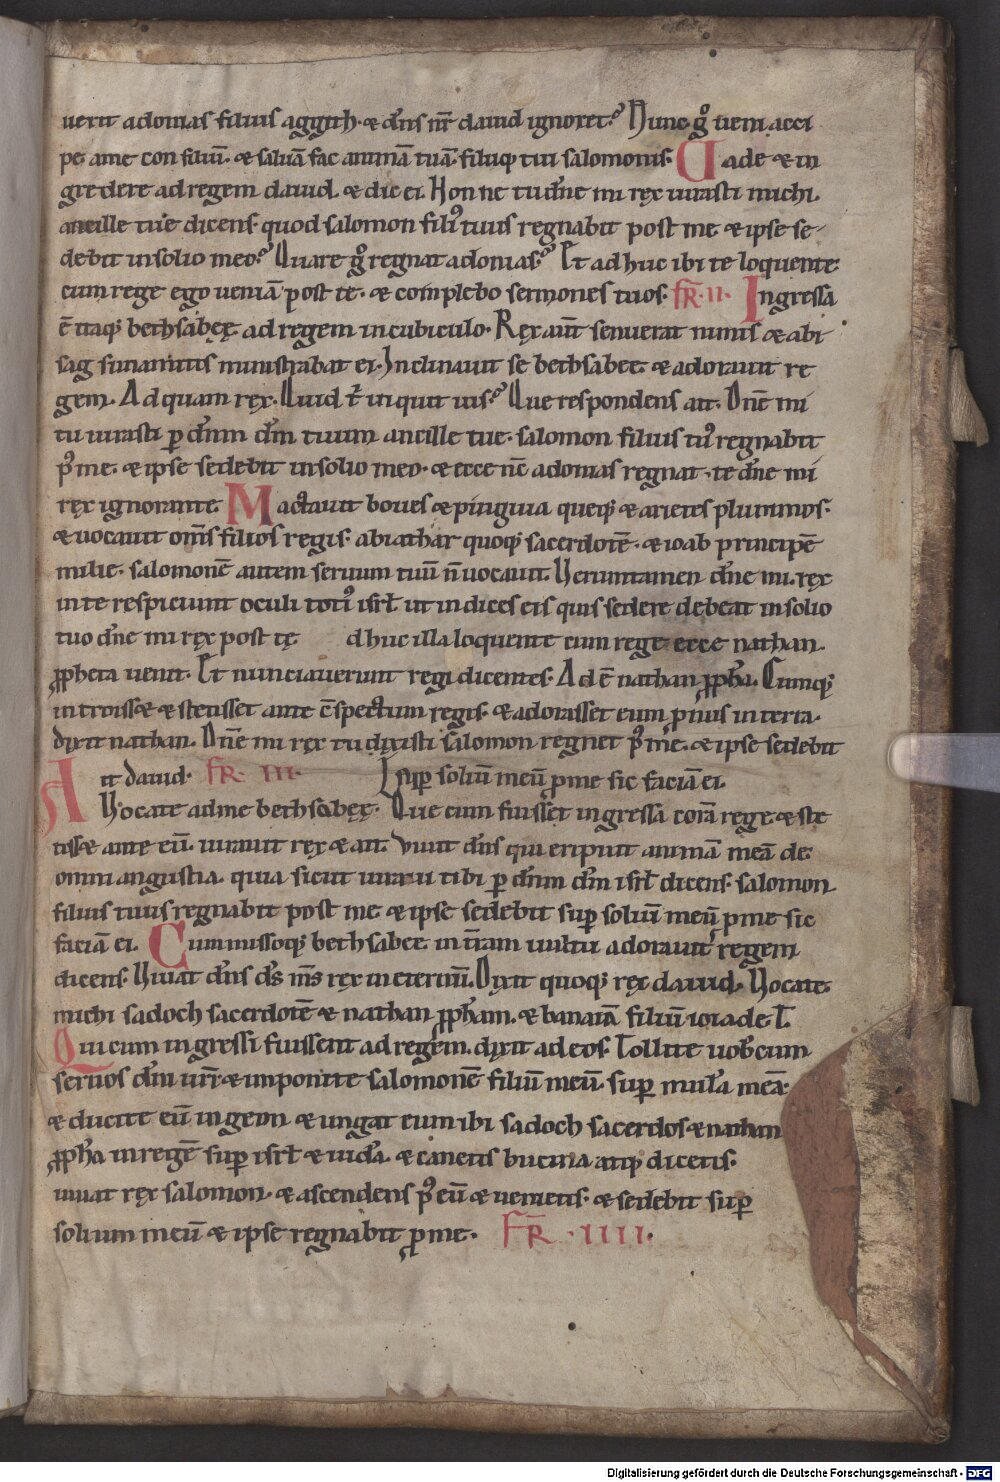 uerit adonias filius aggith· & dn̄s nr̄ dauid ignoret? Nunc gͦ ueni acci
pe ame con filiū· & saluā fac animā tuā· filiiq; tui salomonis· Uade & in
gredere ad regem dauid· & dic ei· Nonne tu dn̄e mi ręx iurasti michi
ancille tue dicens· quod salomon filiꝰ tuus regnabit post me & ipse se-
debit in solio meo? Quare gͦ regnat adonias? Et ad huc ibi te loquente
cum rege ego ueniā post te· & complebo sermones tuos· FR̄· II· Ingressa
ē itaq; bethsabęę ad regem in cubiculo· Ręx aut̄ senuerat nimis & abi
sag sunamitis ministrabat ei· Inclinauit se bethsabee· & adorauit re
gem· Ad quam ręx· Quid t̄ inquit uis? Que respondens ait· Dn̄e mi
tu iurasti ꝑ dn̄m dm̄ tuum ancille tue· salomon filius tuꝰ regnabit
pꝰ me· & ipse sedebit in solio meo· & ecce nc̄ adonias regnat· te dn̄e mi
ręx ignorante· Mactauit boues & pinguia queq; & arietes plurimos·
& uocauit om̄s filios regis· abiathar quoq; sacerdotē· & ioab principē
milie· salomonē autem seruum tuū n̄ uocauit· Veruntamen dn̄e mi ręx
in te respiciunt oculi totiꝰ isrl̄ ut indices eis quis sedere debeat in solio
tuo dn̄e mi ręx post tę dhuc illa loquente cum rege ecce nathan
ꝓpheta uenit· Et nunciauerunt regi dicentes· Ad ē nathan ꝓph̄a· Cumq;
introiss& & stetisset ante c̄spectum regis· & adorasset eum pronus in terra·
dixit nathan· Dn̄e mi ręx tu dixisti salomon regnet pꝰ me· & ipse sedebit
Ait dauid· FR̄· III· sup̄ soliū meū ꝓ me sic faciā ei·
Vocate ad me bethsabęę· Que cum fuisset ingressa corā rege & ste
tiss& ante eū· iurauit ręx & ait· Viuit dn̄s qui eripuit animā meā de
omni angustia· quia sicut iuraui tibi ꝑ dn̄m dm̄ isrl̄ dicens· salomon
filius tuus regnabit post me & ipse sedebit sup̄ soliū meū ꝓ me sic
faciā ei· Cummissoq; bethsabee in t̄ram uultu adorauit regem
dicens· Viuat dn̄s ds̄ ms̄ ręx in eternū· Dixit quoq; ręx dauid· Vocate
michi sadoch sacerdotē & nathan ꝓph̄am· & banaiā filiū ioiade·
Qui cum ingressi fuissent ad regem· dixit ad eos· Tollite uobcum
seruos dm̄ urī· & imponite salomonē filiū meū· sup̄ mulā meā·
& ducite eū in geon & ungat eum ibi sadoch sacerdos & nathan
ꝓph̄a in regē sup̄ isrl̄ & iuda· & canetis bucina atq; dicetis·
uiuat ręx salomon· & ascendens pꝰ eū & uenietis· & sedebit sup̄
solium meū & ipse regnabit ꝓ me· FR̄· IIII·
Digitalisierung gefördert durch die Deutsche Forschungsgemeinschaft - DFG